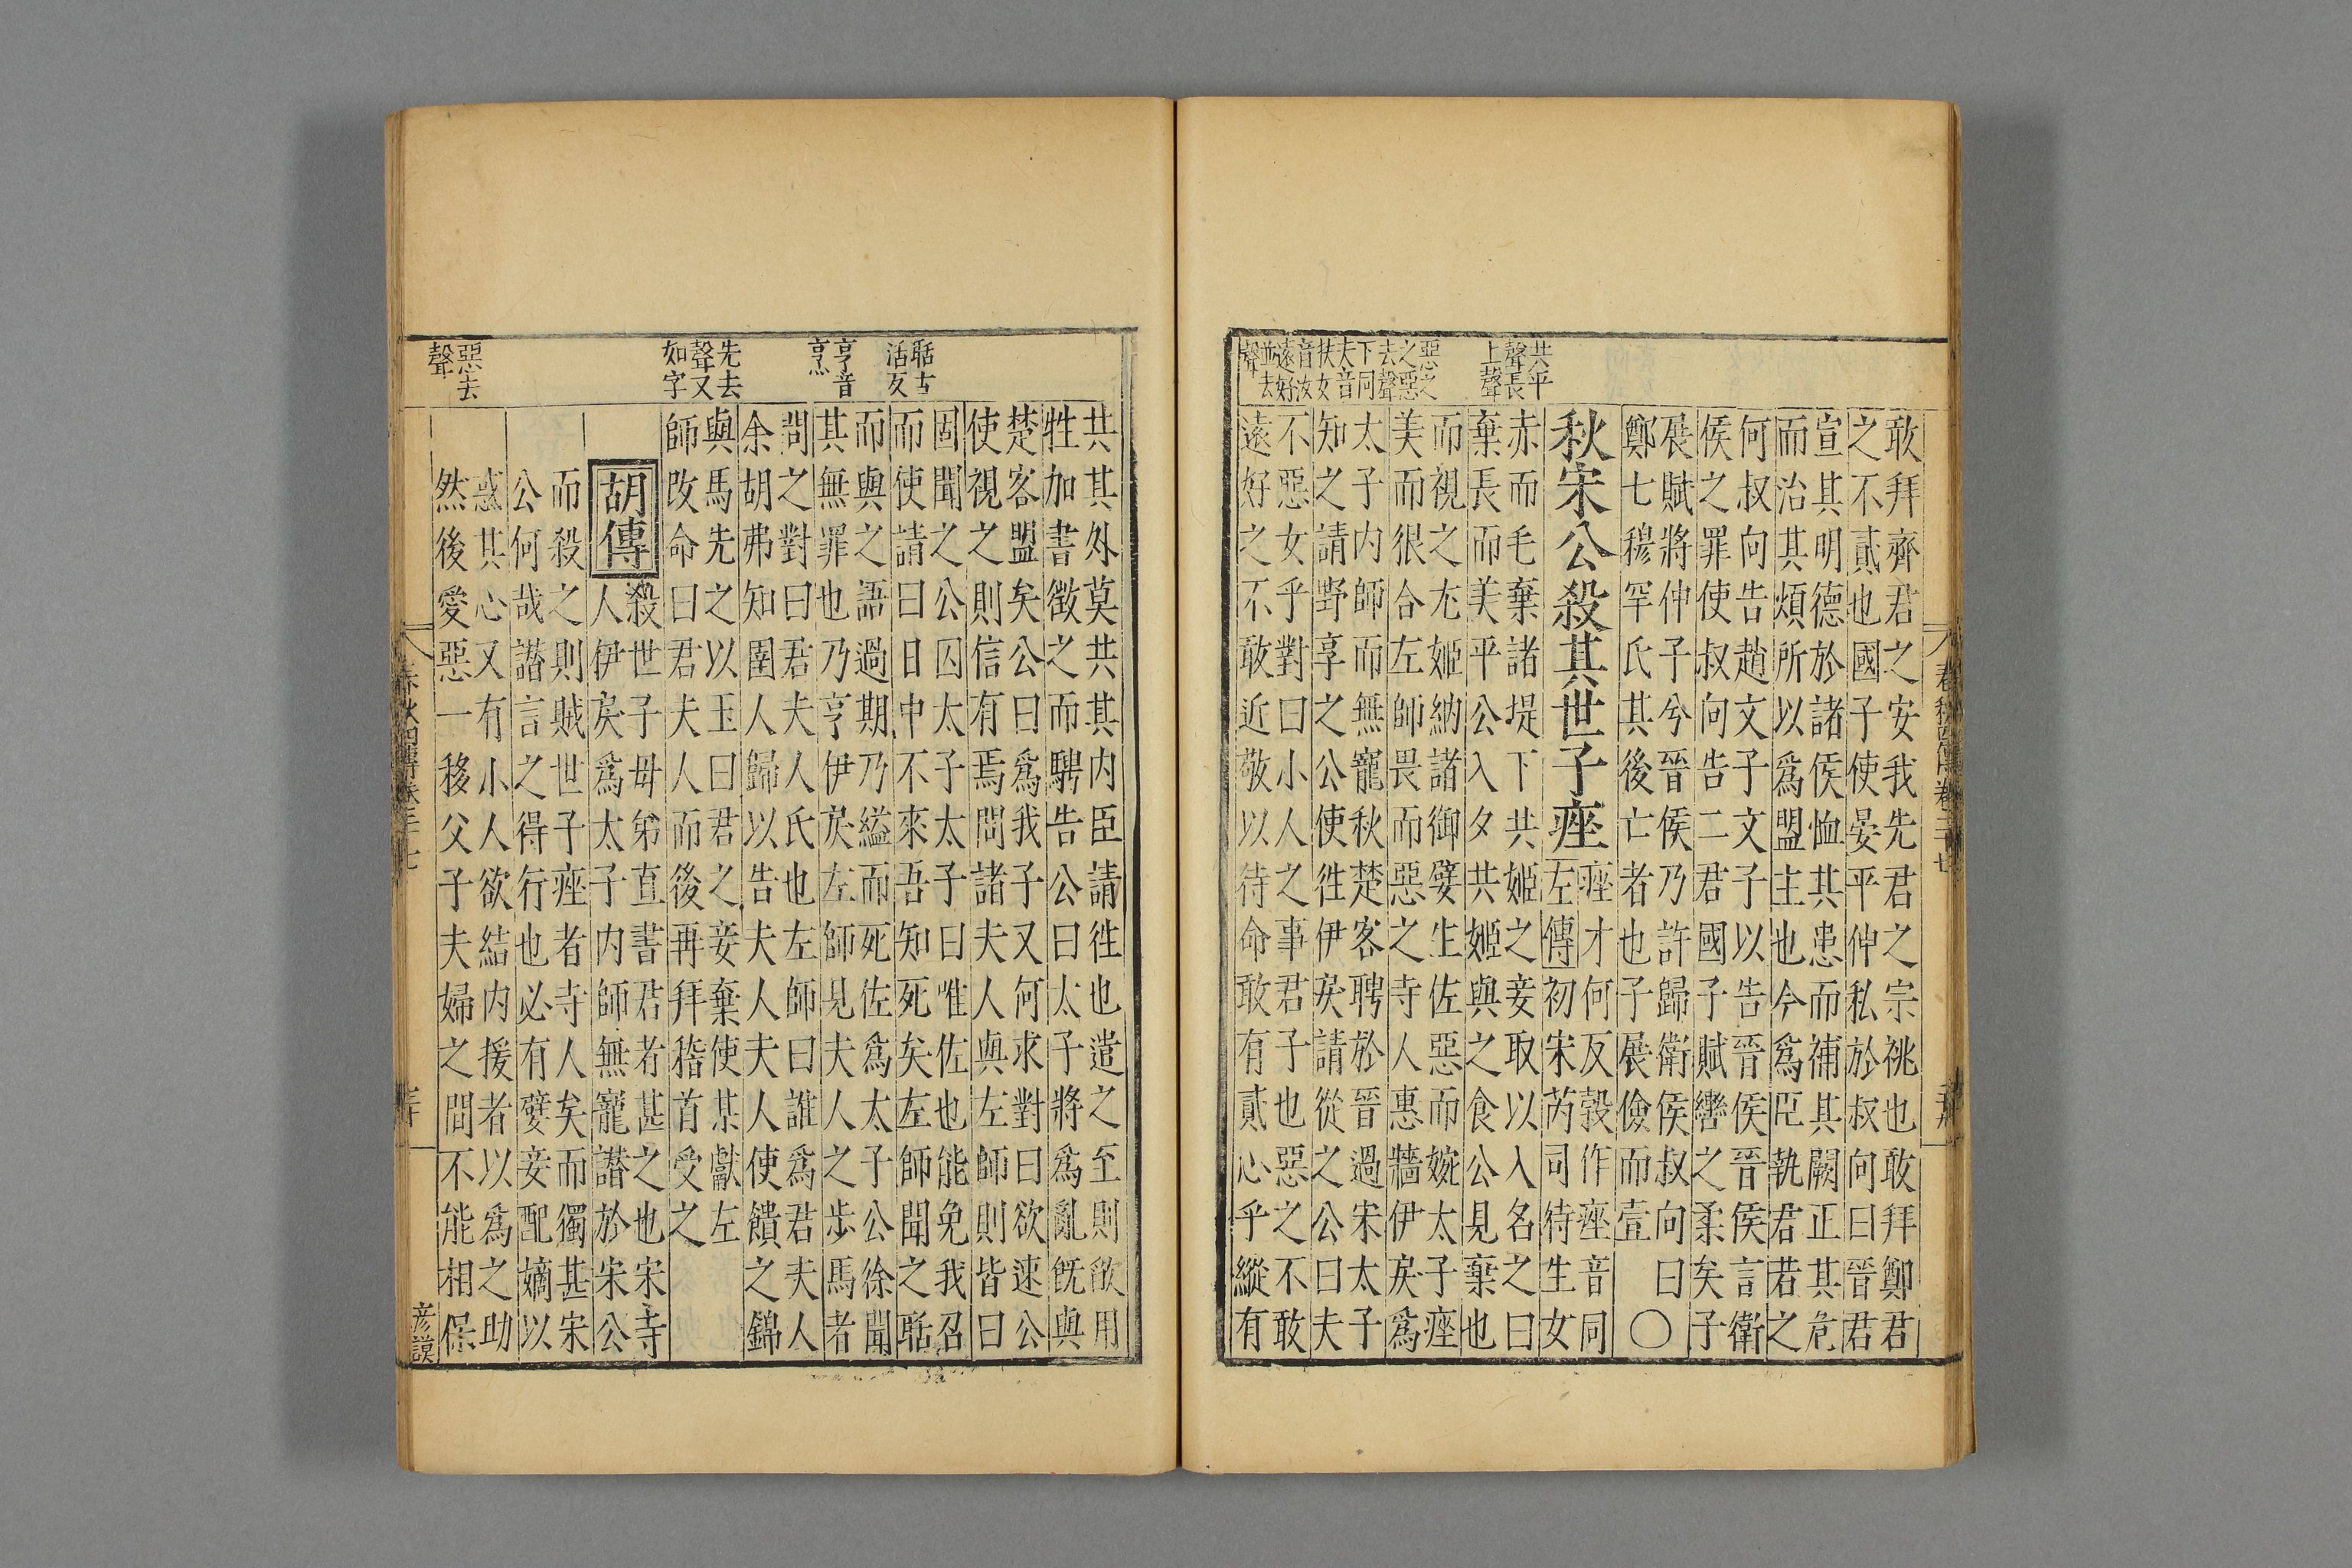 共平
聲長
上聲
惡之
之惡
去聲
下同
夫音
扶女
音汝
遠好
並去
聲
敢拜齊君之安我先君之宗祧也敢拜鄭君
之不貳也國子使晏平仲私於叔向曰晉君
宣其明德於諸侯恤其患而補其闕正其危
而治其煩所以爲盟主也今爲臣執君若之
何叔向告趙文子文子以告晉侯晉侯言衛
侯之罪使叔向告二君國子賦轡之柔矣子
展賦將仲子兮晉侯乃許歸衛侯叔向曰
鄭七穆罕氏其後亡者也子展儉而壹〇
秋宋公殺其世子痤
痤才何反穀作痤音同
左傳初宋芮司待生女
赤而毛棄諸堤下共姬之妾取以入名之曰
棄長而美平公入夕共姬與之食公見棄也
而視之尤姬納諸御嬖生佐惡而婉太子痤
美而很合左師畏而惡之寺人惠牆伊戾爲
太子内師而無寵秋楚客聘於晉過宋太子
知之請野享之公使往伊戾請從之公曰夫
不惡女乎對曰小人之事君子也惡之不敢
遠好之不敢近敬以待命敢有貳心乎縱有
春秋四傳卷二十七
聒古
活反
亨音
烹
先去
聲又
如字
惡去
聲
共其外莫共其内臣請往也遣之至則欿用
牲加書徵之而騁告公曰太子將爲亂既與
楚客盟矣公曰爲我子又何求對曰欲速公
使視之則信有焉問諸夫人與左師則皆曰
固聞之公囚太子太子曰唯佐也能免我召
而使請曰日中不來吾知死矣左師聞之聒
而與之語過期乃縊而死佐爲太子公徐聞
其無罪也乃亨伊戾左師見夫人之步馬者
問之對曰君夫人氏也左師曰誰爲君夫人
余胡弗知圉人歸以告夫人夫人使饋之錦
與馬先之以玉曰君之妾棄使某獻左
師改命曰君夫人而後再拜稽首受之
胡傳
殺世子母弟直書君者甚之也宋寺
人伊戾爲太子内師無寵譖於宋公
而殺之則賊世子痤者寺人矣而獨甚宋
公何哉譖言之得行也必有嬖妾配嫡以
惑其心又有小人欲結内援者以爲之助
然後愛惡一移父子夫婦之間不能相保
春秋四傳卷二十七
彥謨